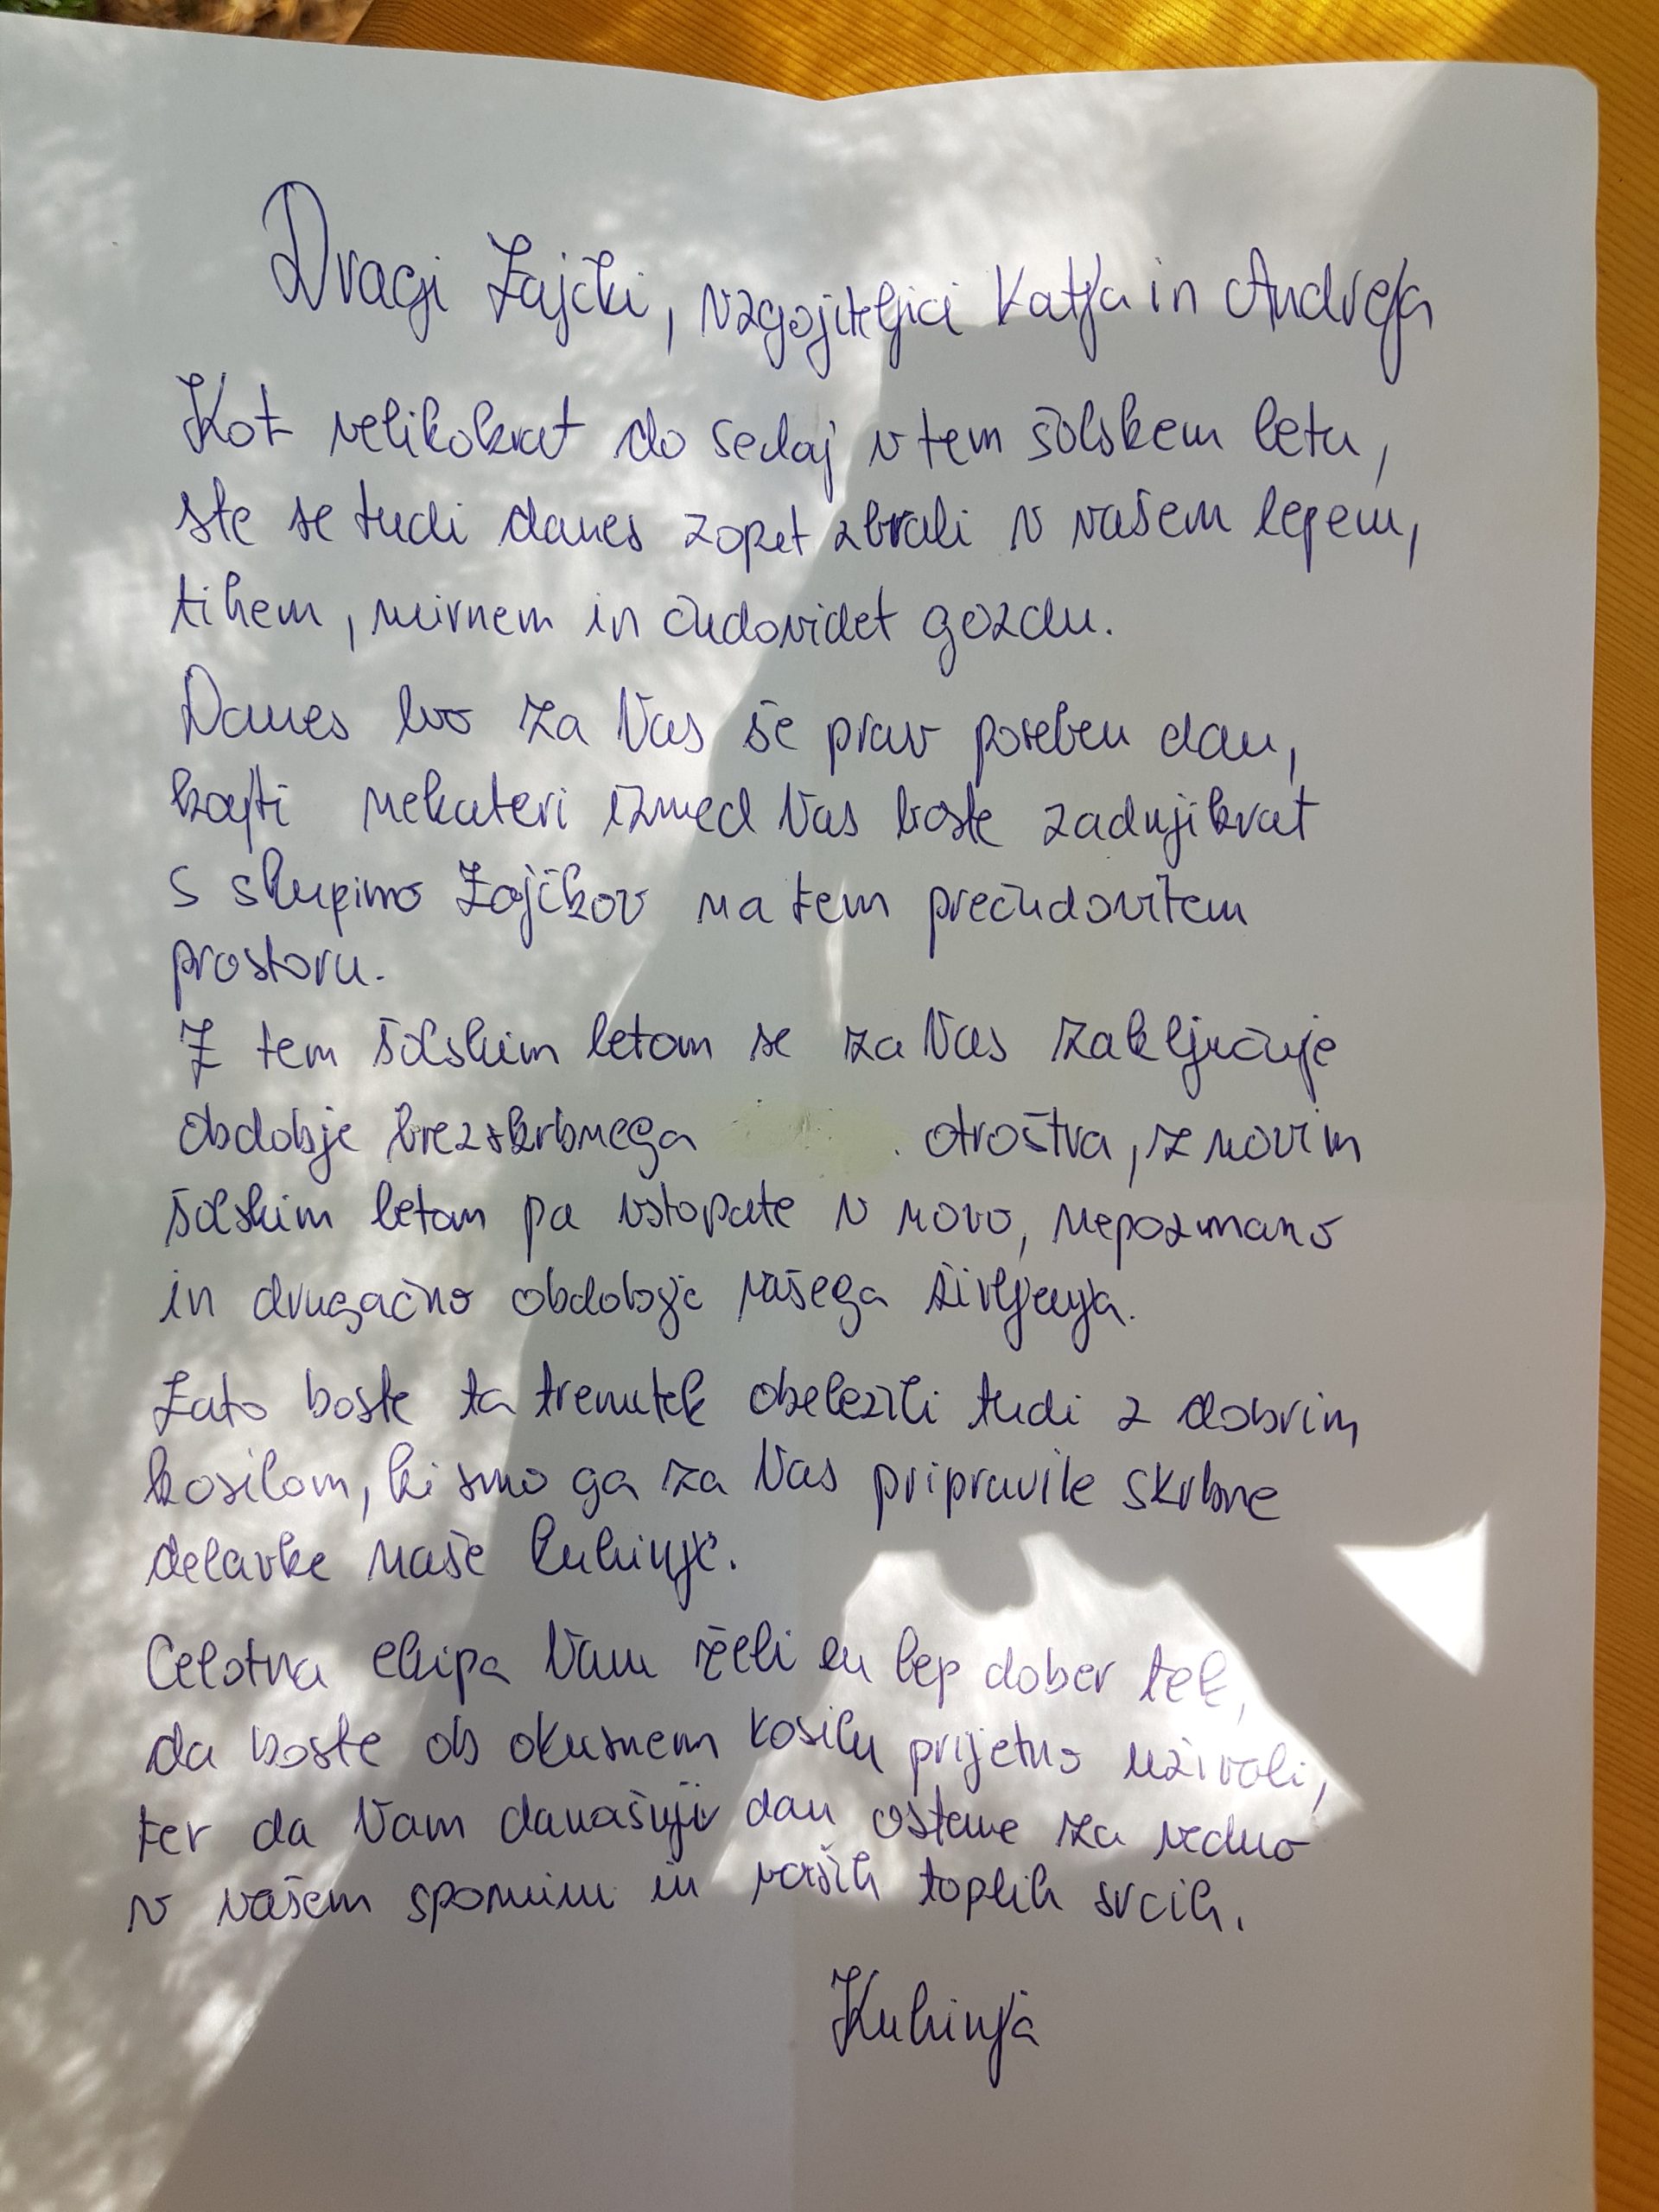 Dragi Zajčki, vzgojiteljici Katja in Andreja
Kot velikokrat do sedaj v tem šolskem letu,
ste se tudi danes zopet zbrali v vašem lepem,
tihem, mirnem in čudovidet gozdu.
Danes bo za Vas še prav poseben dan,
kajti nekateri izmed Vas boste zadnjikrat
s skupino Zajčkov na tem prečudovitem
prostoru.
Z tem šolskim letom se za Vas zaključuje
obdobje brezskrbnega otroštva, z novim
šolskim letom pa vstopate v novo, nepoznano
in drugačno obdobje vašega življenja.
Zato boste ta trenutek obeležili tudi z dobrim
kosilom, ki smo ga za Vas pripravile skrbne
delavke naše kuhinje.
Celotna ekipa Vam želi en lep dober tek,
da boste ob okusnem kosilu prijetno uživali,
ter da Vam današnji dan ostane za vedno
v vašem spominu in vaših toplih srcih.
Kuhinja